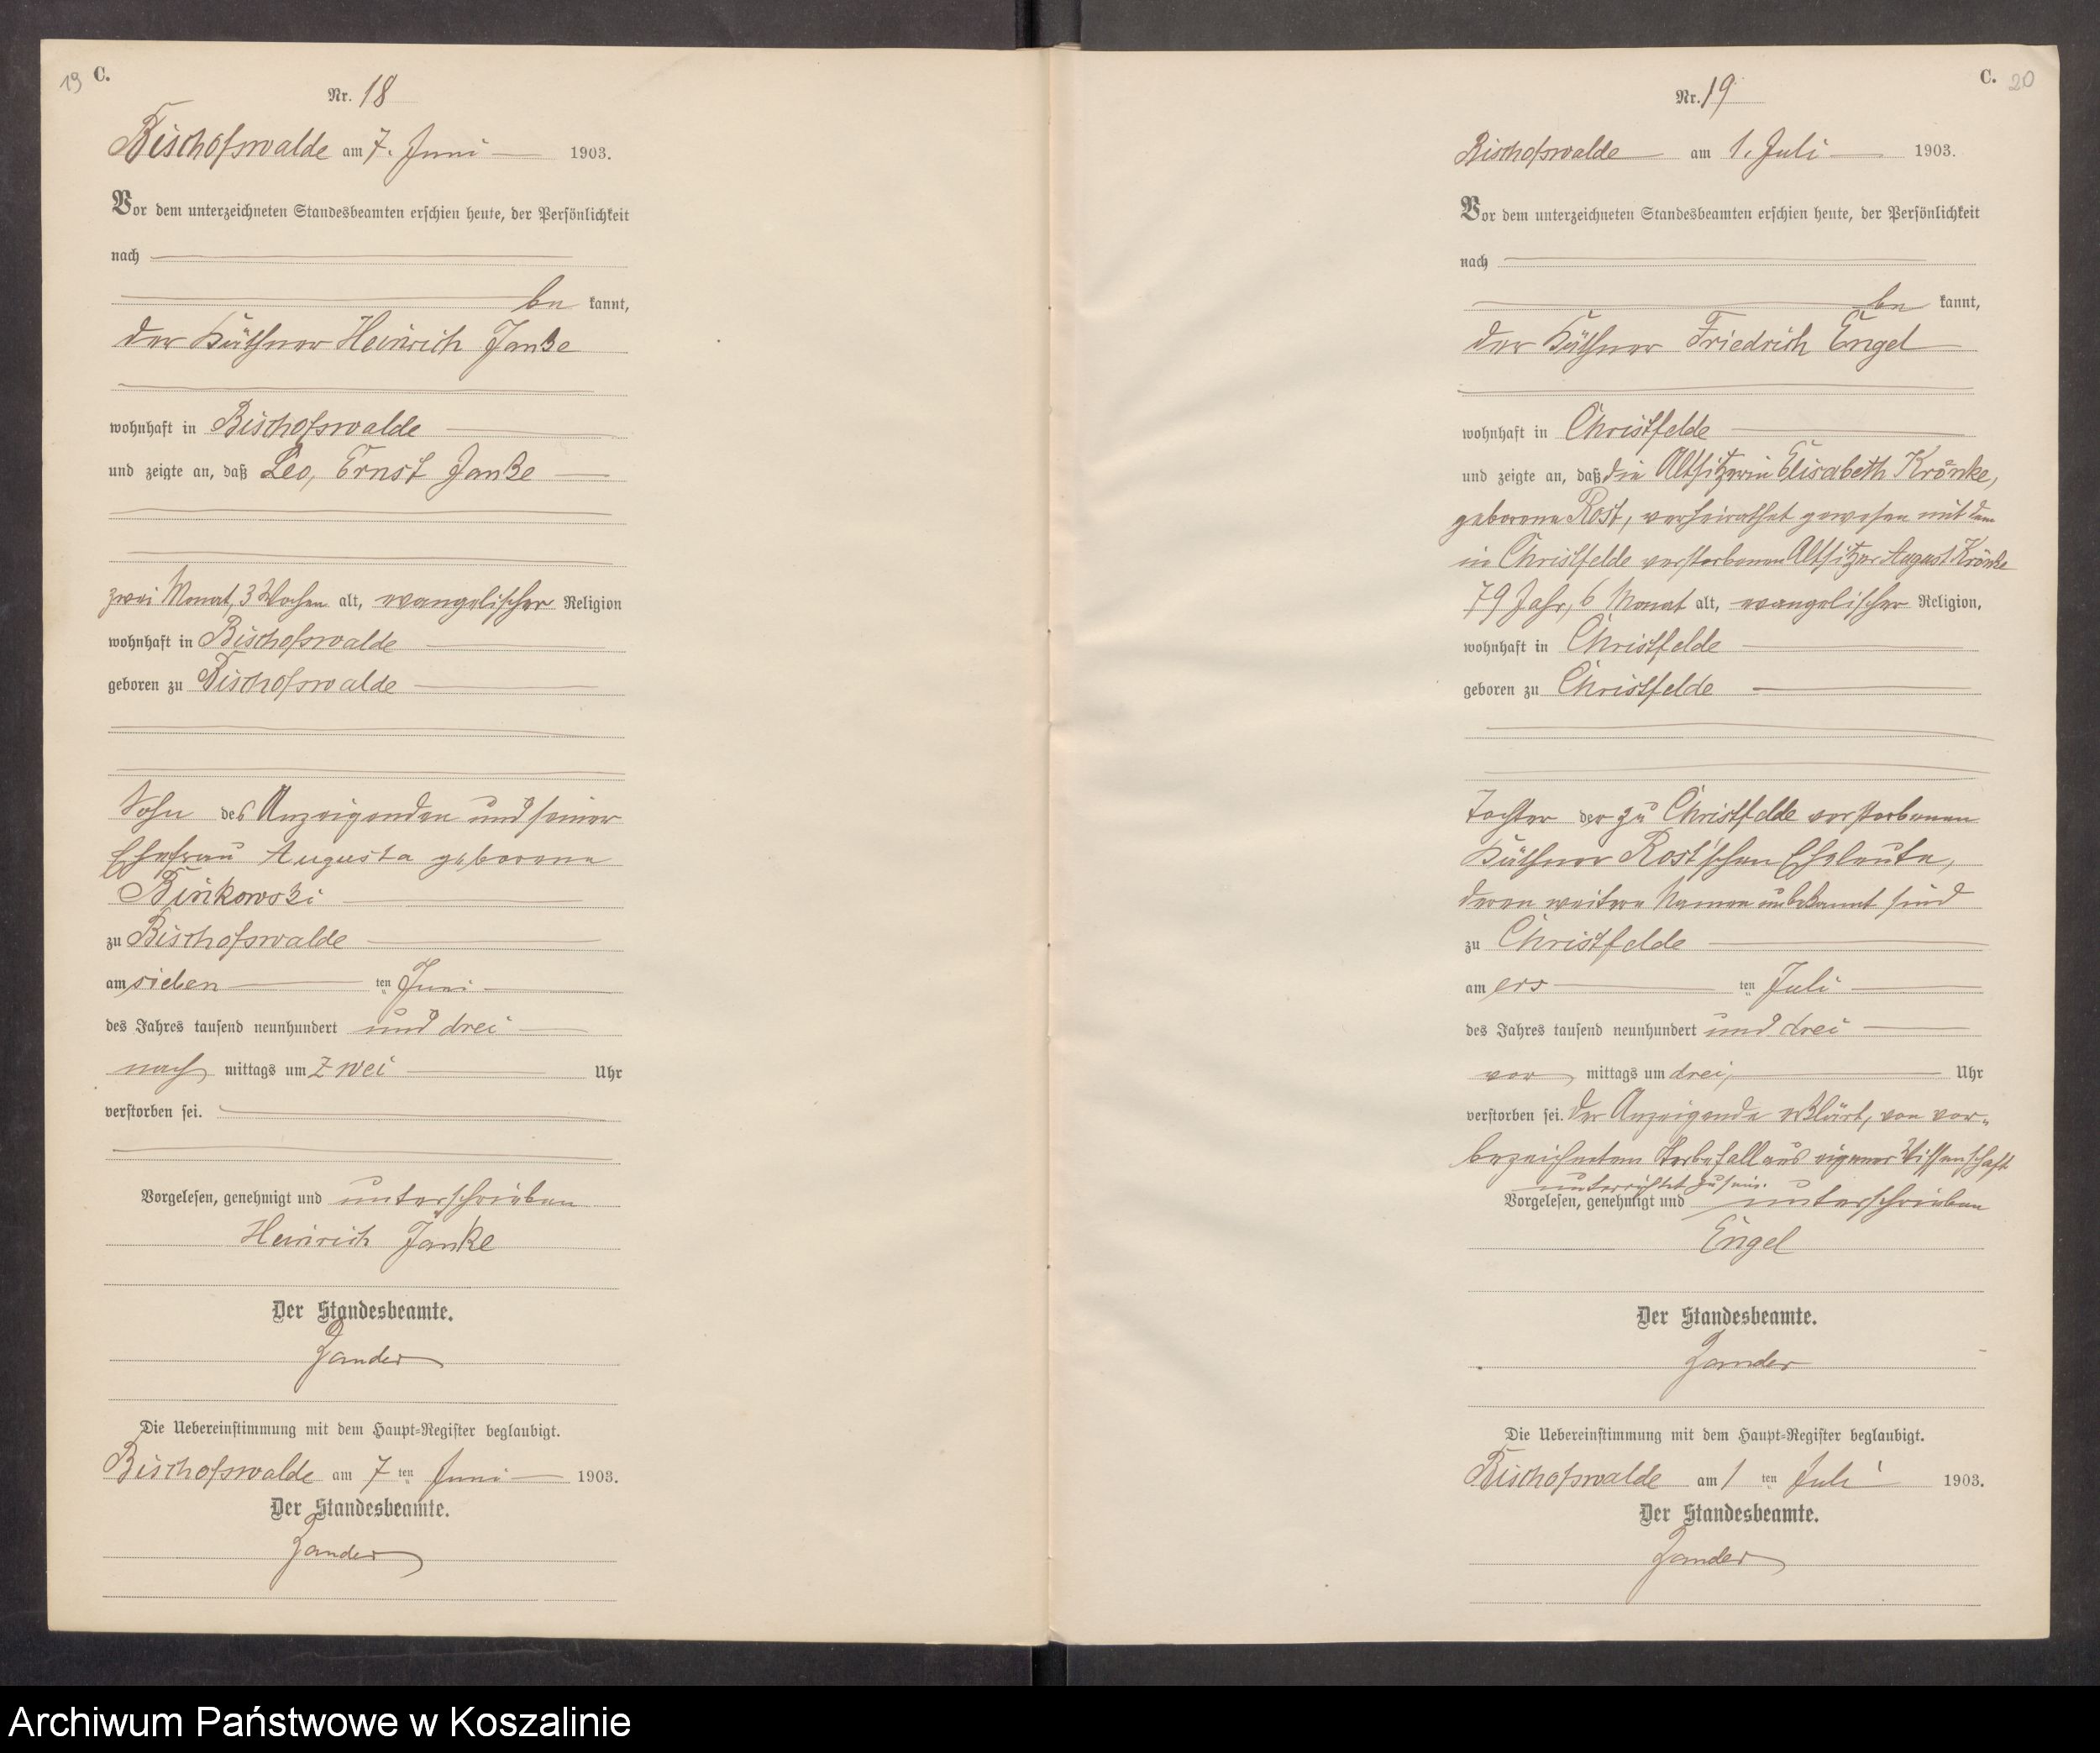 19 C.
Nr. 18
Bischofswalde am 7. Juni 1903.
Vor dem unterzeichneten Standesbeamten erschien heute, der Persönlichkeit
nach
be kannt,
der Käthner Heinrich Janke
wohnhaft in Bischofswalde
und zeigte an, daß Leo, Ernst Janke
zwei Monat, 3 Wochen alt, evangelischer Religion
wohnhaft in Bischofswalde
geboren zu Bischofswalde
Sohn des Anzeigenden und seiner
Ehefrau Augusta geborene
Binkowski
zu Bischofswalde
am sieben ten Juni
des Jahres tausend neunhundert und drei
nach mittags um zwei Uhr
verstorben sei.
Vorgelesen, genehmigt und unterschrieben
Heinrich Janke
Der Standesbeamte.
Zander
Die Uebereinstimmung mit dem Haupt-Register beglaubigt.
Bischofswalde am 7 ten Juni 1903.
Der Standesbeamte.
Zander
C. 20
Nr. 19
Bischofswalde am 1. Juli 1903.
Vor dem unterzeichneten Standesbeamten erschien heute, der Persönlichkeit
nach
be kannt,
der Käthner Friedrich Engel
wohnhaft in Christfelde
und zeigte an, daß die Altsitzerin Elisabeth Krönke,
geborene Rost, verheirathet gewesen mit dem
in Christfelde verstorbenen Altsitzer August Krönke
79 Jahr, 6 Monat alt, evangelischer Religion,
wohnhaft in Christfelde
geboren zu Christfelde
Tochter der zu Christfelde verstorbenen
Käthner Rost'schen Eheleute,
deren weitere Namen unbekannt sind
zu Christfelde
am ers ten Juli
des Jahres tausend neunhundert und drei
vor mittags um drei, Uhr
verstorben sei. Der Anzeigende erklärt, von vor-
bezeichneten Sterbefall aus eigener Wissenschaft
unterrichtet zu sein.
Vorgelesen, genehmigt und unterschrieben
Engel
Der Standesbeamte.
Zander
Die Uebereinstimmung mit dem Haupt-Register beglaubigt.
Bischofswalde am 1 ten Juli 1903.
Der Standesbeamte.
Zander
Archiwum Państwowe w Koszalinie